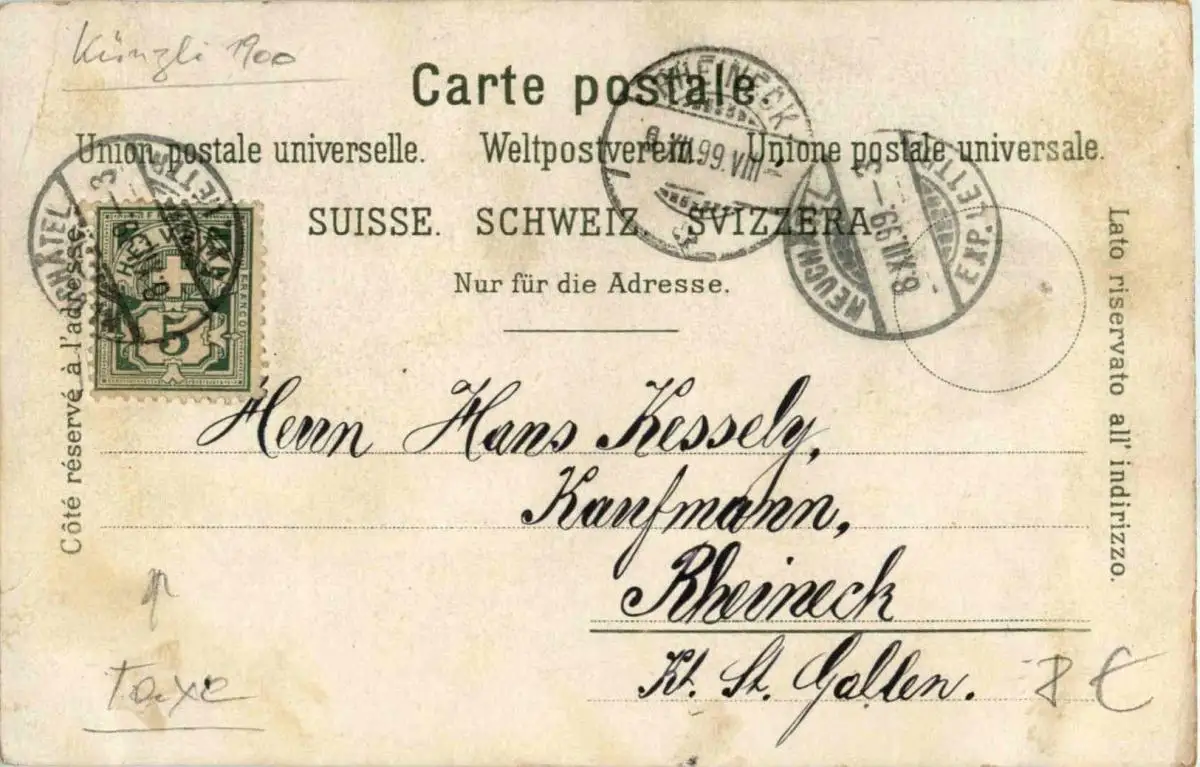 Künzli 1900
Carte postale
Union postale universelle. Weltpostverein. Unione postale universale.
SUISSE. SCHWEIZ. SVIZZERA.
Nur für die Adresse.
Côté réservé à l'adresse.
Lato riservato all' indirizzo.
RHEINECK
XII.99.VIII
NEUCHÂTEL
EXP. LETTR.
8.XII.99.
3
NEUCHÂTEL
FRANCO
5
Herrn Hans Kessely,
Kaufmann,
Rheineck
Kt. St. Gallen.
Taxe
8 €